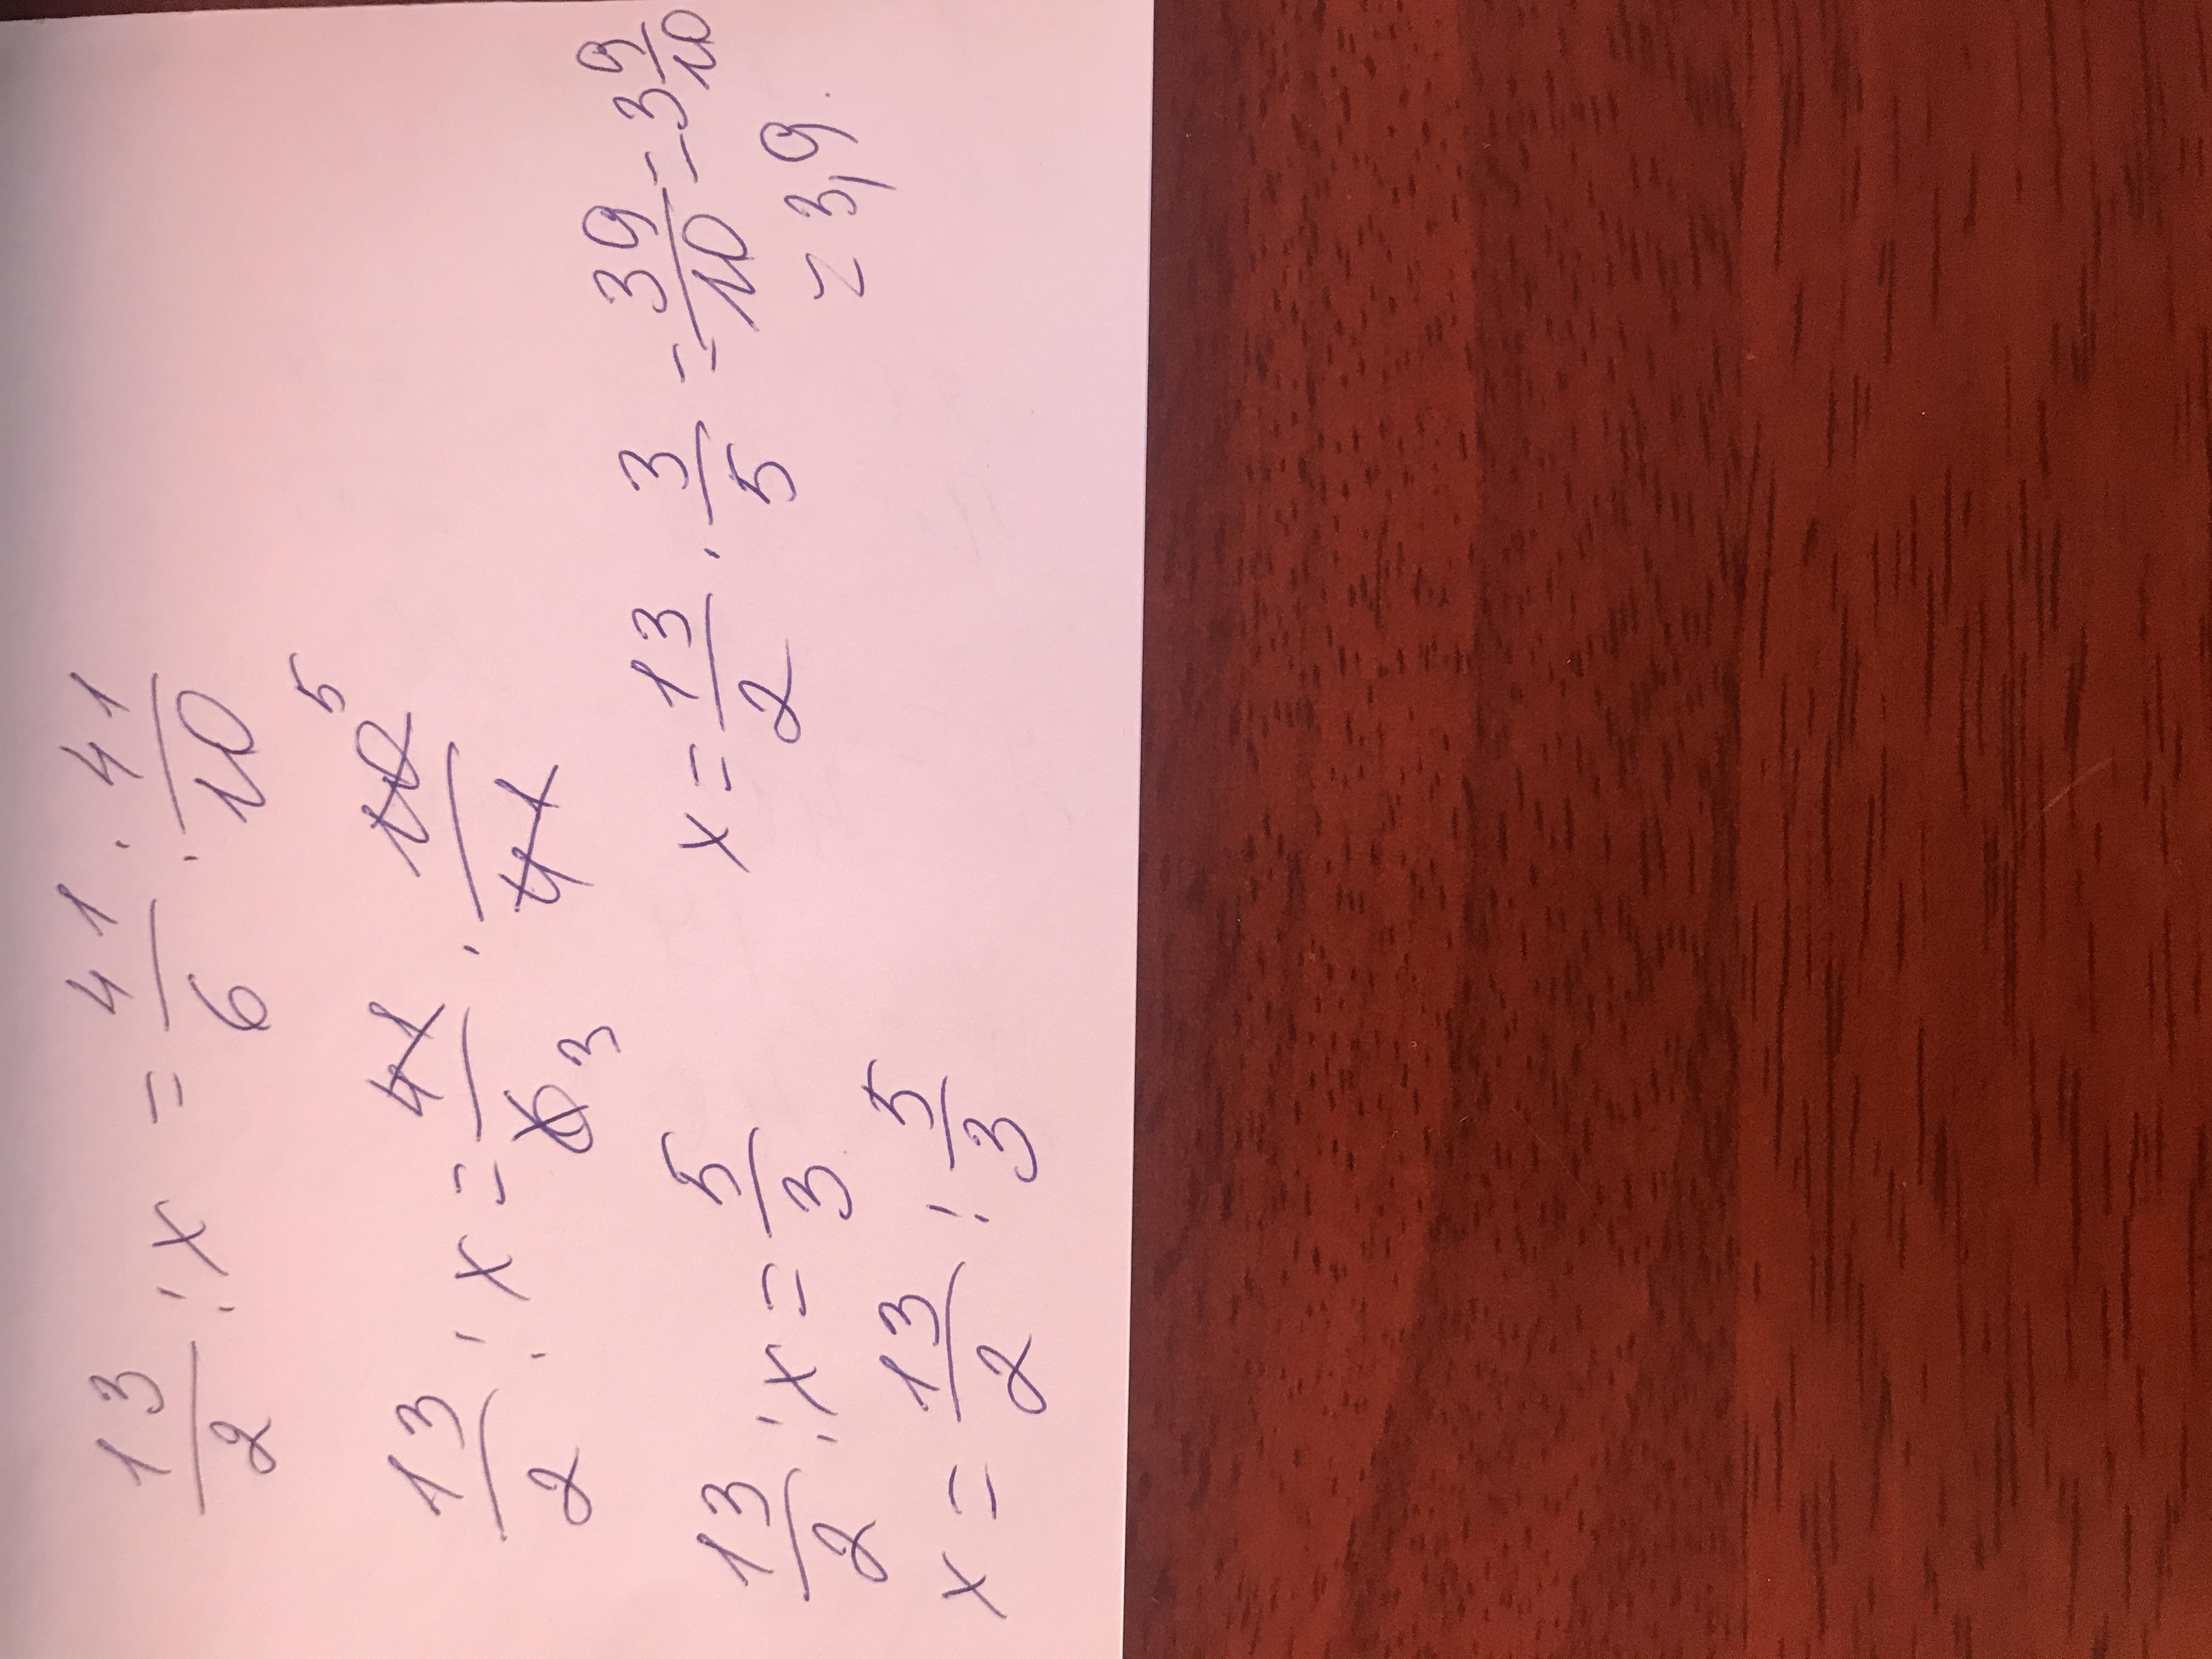 13/2 : x = 41/6 : 41/10
13/2 : x = 41/6 3 · 10/41 5
13/2 : x = 5/3
x = 13/2 : 5/3
x = 13/2 · 3/5 = 39/10 = 3 9/10
= 3,9.